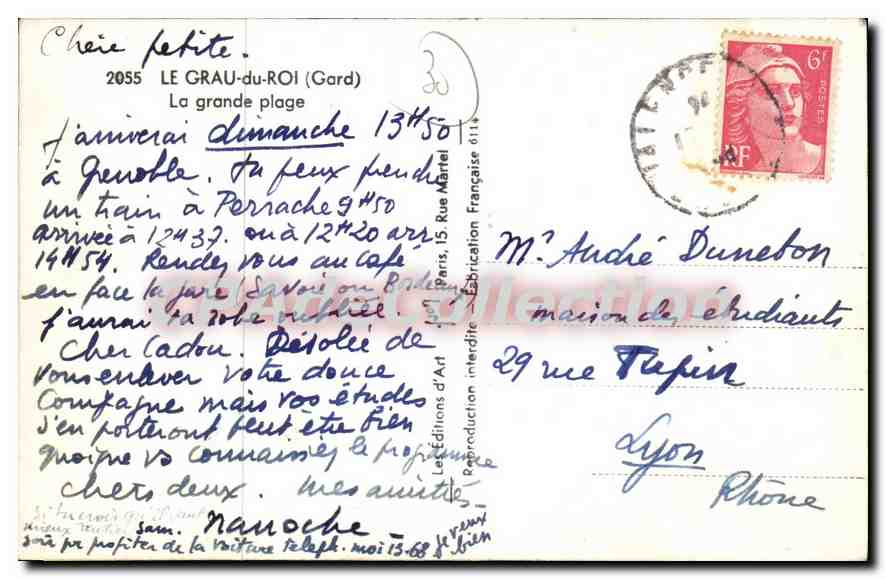 Chère petite.
30
2055 LE GRAU-du-ROI (Gard)
La grande plage
J'arriverai dimanche 13H50
à Grenoble. tu peux prendre
un train à Perrache 9H50
arrivée à 12H37. ou à 12H20 arr.
14H54. Rendez vous au café
en face la gare (Savoie ou Bordeaux
j'aurai ta robe oubliée.
Cher Cadou. Désolée de
vous enlever votre douce
Compagne mais vos études
s'en porteront peut être bien
quoique vs connaissiez le programme
chers deux. mes amitiés
Nanoche
si tu crois qu'il faut
mieux rentrer sam.
soir pr profiter de la voiture téléph. moi 13-68 je veux
bien
Les Éditions d'Art Paris, 15, Rue Martel
Reproduction interdite Fabrication Française 6114
6F
POSTES
RF
Mr André Dunebon
maison des étudiants
29 rue
Lyon
Rhône
CPArt Collection